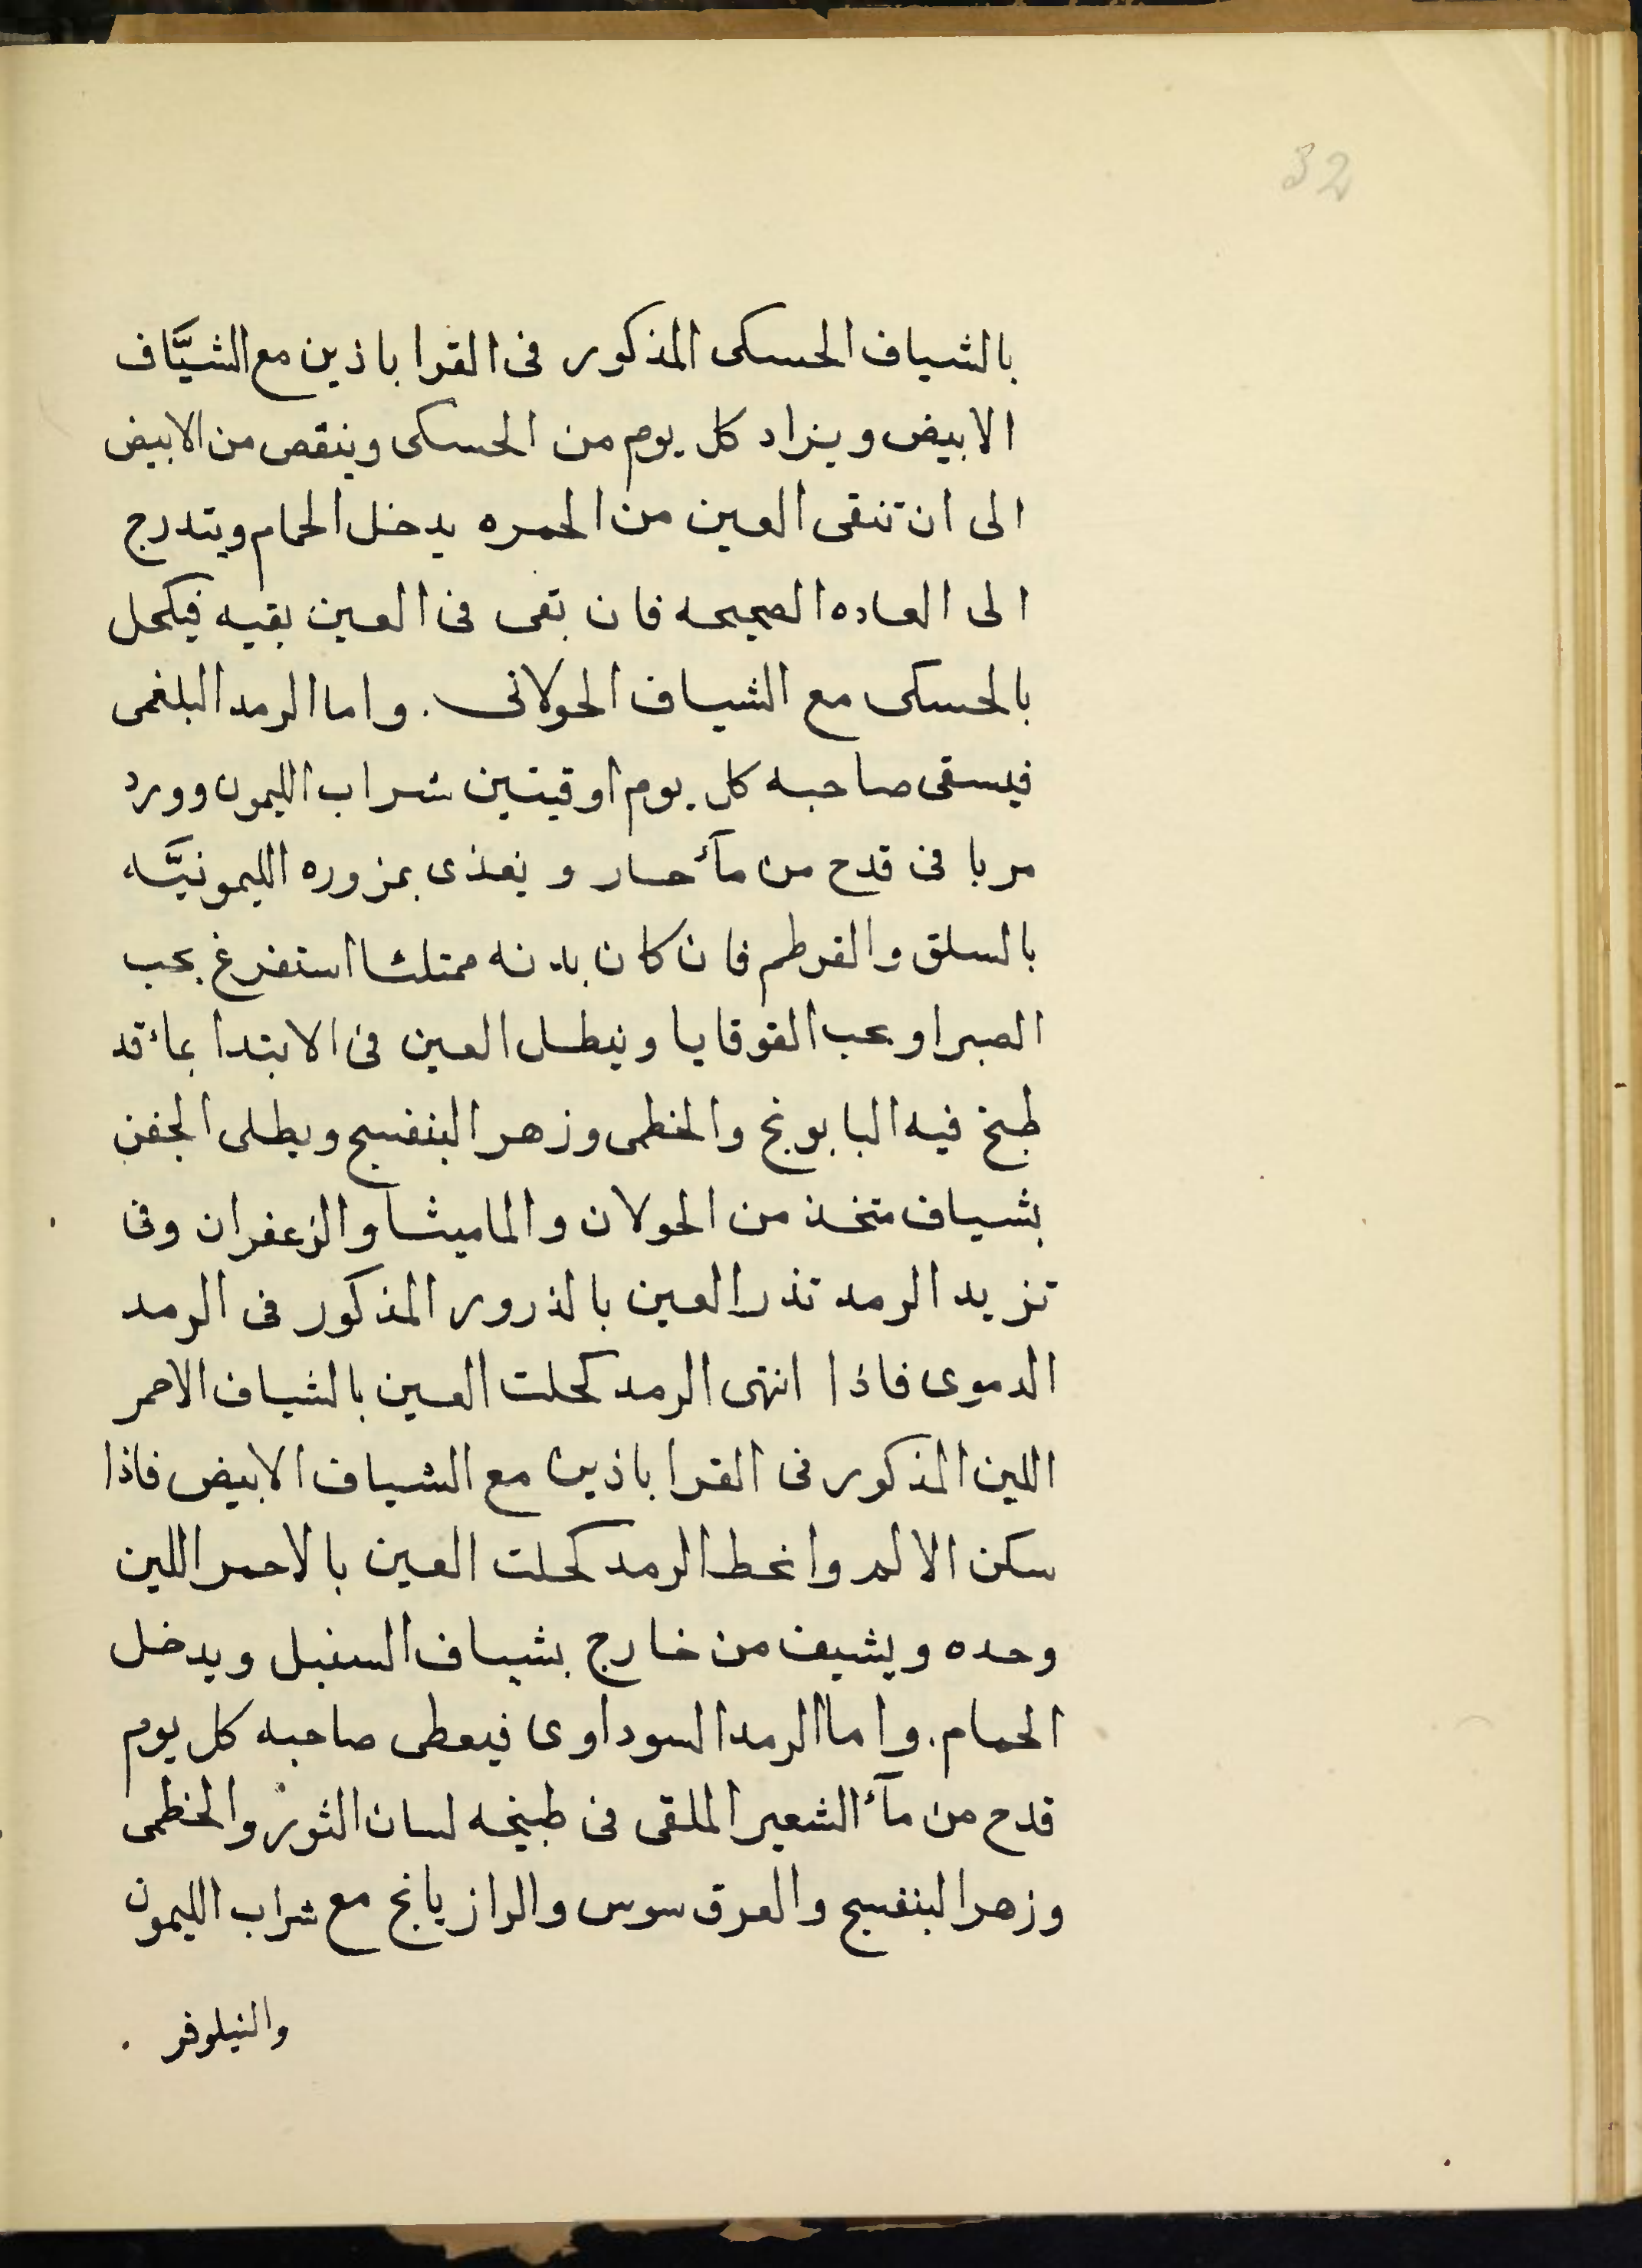 32
بالشياف الحسكى المذكور فى القرا باذين مع الشيَّاف
الابيض ويزاد كل يوم من الحسكى وينقص من الابيض
الى ان تنقى العين من الحمره يدخل الحمام ويتدرج
الى العاده الصحيحه فان بقى فى العين بقيه فيكحل
بالحسكى مع الشياف الحولانى . واما الرمد البلغمى
فيسقى صاحبه كل يوم اوقيتين شراب الليمون وورد
مربا فى قدح من مآء حار و يغذى بمزوره الليمونيَّه
بالسلق والقرطم فان كان بدنه ممتلئا استفرغ بحب
الصبر او بحب القوقايا وينطل العين فى الابتدا بماء قد
طبخ فيه البابونج والخطمى وزهر البنفسج ويطلى الجفن
بشياف متخذ من الحولان والماميثا والزعفران وفى
تزيد الرمد تذر العين بالذرور المذكور فى الرمد
الدموى فاذا انتهى الرمد كحلت العين بالشياف الاحمر
اللين المذكور فى القرا باذين مع الشياف الابيض فاذا
سكن الالم وانحط الرمد كحلت العين بالاحمر اللين
وحده ويشيف من خارج بشياف السنبل ويدخل
الحمام . واما الرمد السوداوى فيعطى صاحبه كل يوم
قدح من مآء الشعير الملقى فى طبيخه لسان الثور والخطمى
وزهر البنفسج والعرق سوس والرازيانج مع شراب الليمون
والنيلوفر .